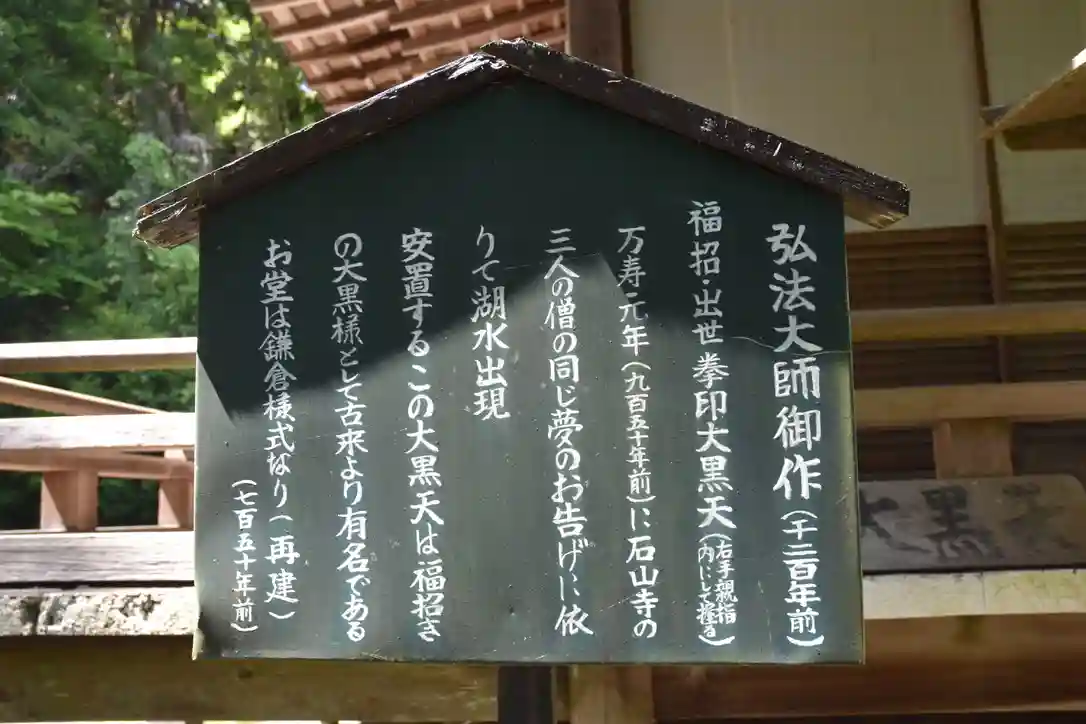 弘法大師御作(千二百年前)
福招・出世 拳印大黒天(右手親指内にして握る)
万寿元年(九百五十年前)に石山寺の
三人の僧の同じ夢のお告げに依
りて湖水出現
安置するこの大黒天は福招き
の大黒様として古来より有名である
お堂は鎌倉様式なり(再建)
(七百五十年前)
大黒天